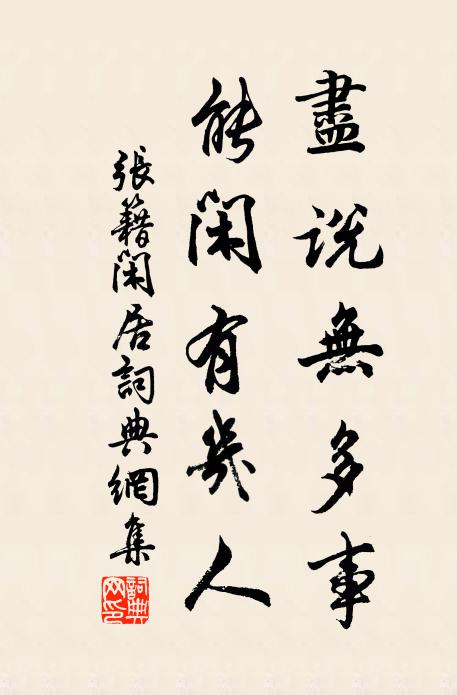 盡說無多事
能閑有幾人
張籍閑居詞典網集
詞典网印